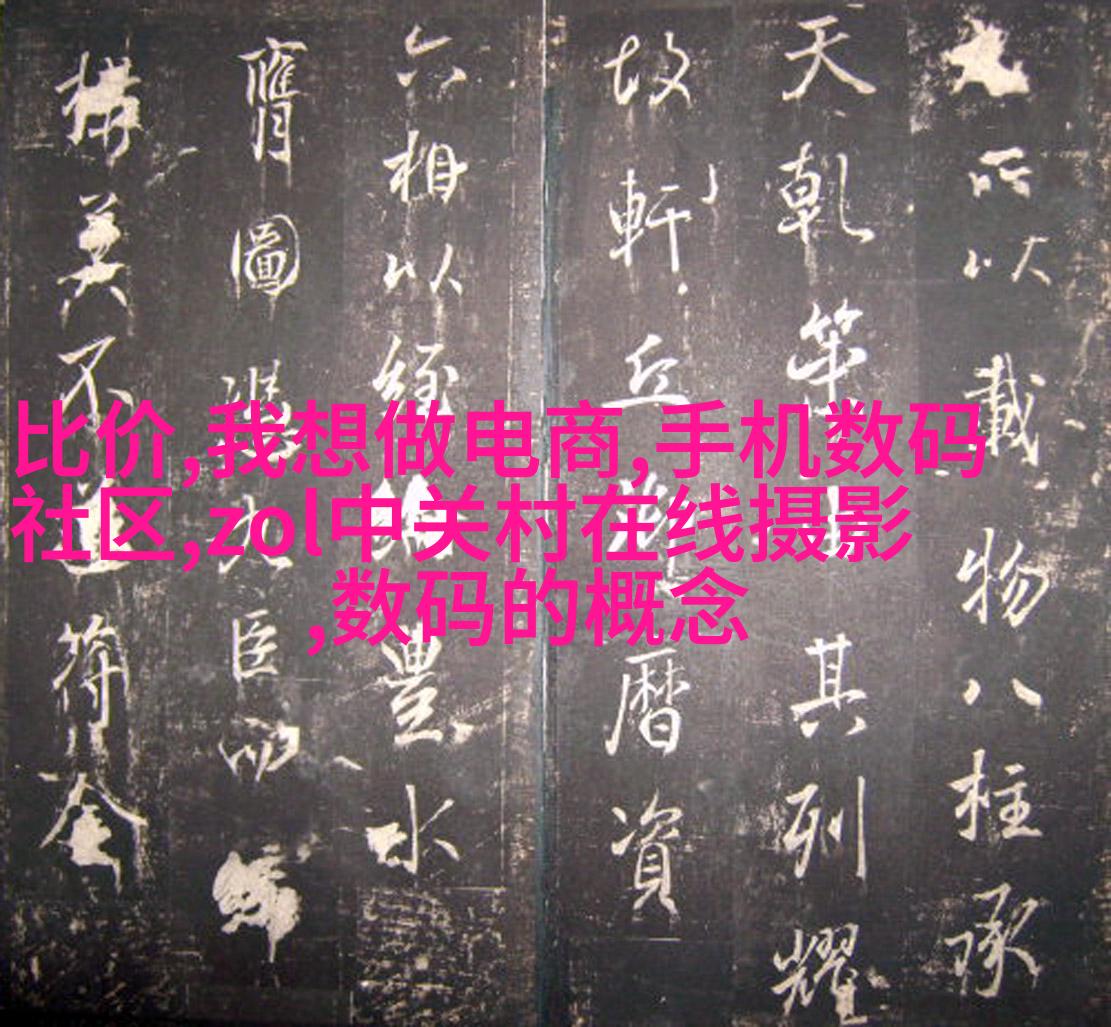 比价,我想做电商,手机数码
社区,zol中关村在线摄影
,数码的概念
所以載物八柱承
天乾其列耀
故軒丘曆資
六相以經豐水
膺圖臣
構莫不符奎